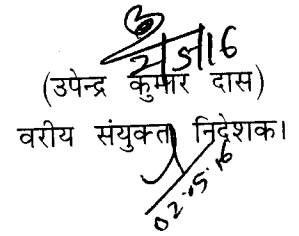 (उपेन्द्र कुमार दास)
वरीय संयुक्त निदेशक।
02.05.16